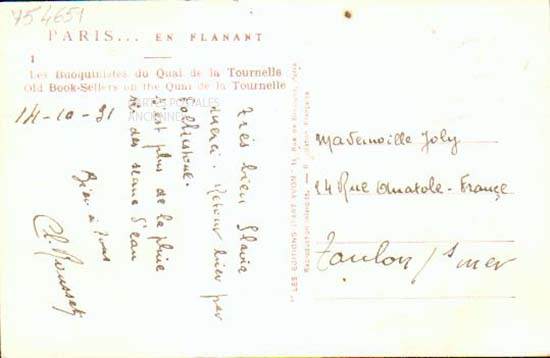 754651
PARIS... EN FLANANT
1
Les Bouquinistes du Quai de la Tournelle
Old Book-Sellers on the Quai de la Tournelle
CARTES POSTALES
ANCIENNES
14-10-31
très bien
merci. Retour hier par
c'est plus de la pluie
des seaux d'eau
Bien à vous
Ch. Rousset
"LES EDITIONS D'ART YVON"
Reproduction Interdite. Fabrication Française
Mademoiselle Joly
24 Rue Anatole-France
Toulon s/mer